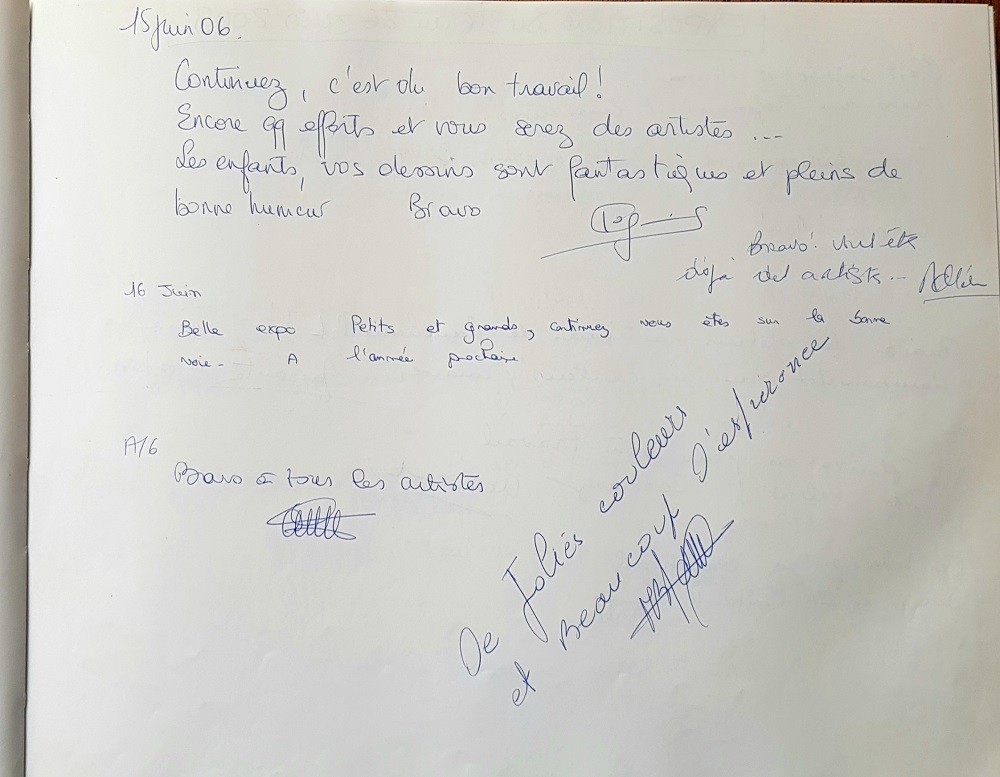 15 juin 06.
Continuez, c'est du bon travail !
Encore qq efforts et vous serez des artistes ...
Les enfants, vos dessins sont fantastiques et pleins de
bonne humeur Bravo
Bravo! Vous êtes
déjà des artistes...
16 Juin
Belle expo Petits et grands, continuez vous êtes sur la bonne
voie - A l'année prochaine
Bravo à tous les artistes
De Jolies couleurs
et Beaucoup d'espérance